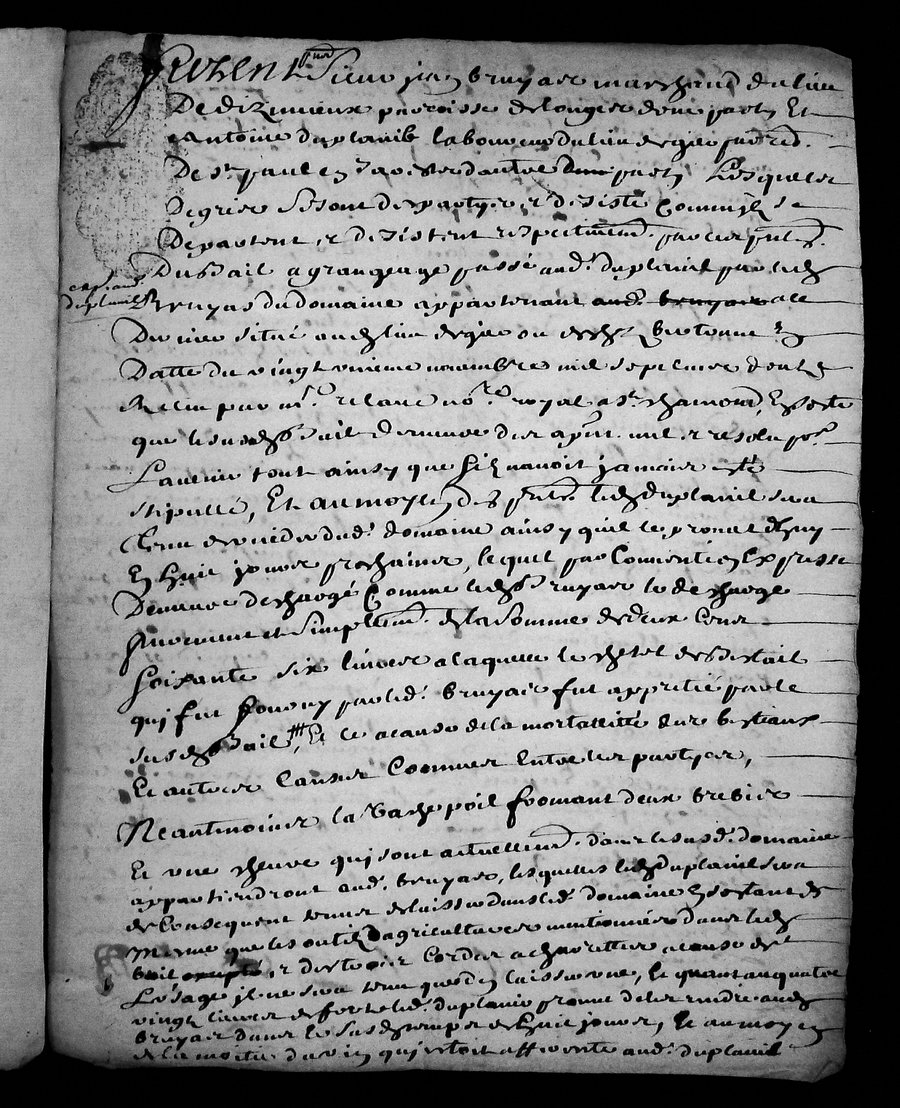 Presents Sieur jean bruyas marchand du lieu
De dizimieux parroisse de longes d'une part Et
Antoine duplanil laboureur du lieu de
De st paul en jarests d'autre part Lesquelles
De gré se sont despartyes et desiste Comm'ils se
Departent et desistent respectivem.t par ces p.ntes
Du bail a grangeage passé aud. duplanil par led.
exp. aud. duplanil
Bruyas du domaine appartenant aud. bruyas a ce
Dernier situé au lieu de ou de
Datte du vingt unieme novembre mil sept cens
Receu par m.e no.re royal a st chamond, En sorte
que le susd. bail demeure des a p.nt nul et resolu p.r
L'avenir tout ainsy que s'il n'avoit jamais esté
stipullé, Et au moyen des p.ntes led. duplanil sera
tenu de vuider dud. domaine ainsy qu'il le promet
En huit jours prochains, lequel par Convention Expresse
Demeure deschargé Comme led. bruyas le descharge
purement et simplem.t de la somme de deux Cens
soixante six livres a laquelle le chetel de bestail
qui fut fourny par led. bruyas fut appretié par le
susd. bail, Et ce a cause de la mortallité des bestiaux
Et autres Causes Connues Entre les partyes,
Neantmoins la vache poil fromant deux brebis
Et une chevre qui sont actuellem.t dans le susd. domaine
appartiendront aud. bruyas, lesquelles led. duplanil sera
de Consequent tenu de laisser dans led. domaine En sortant de
mesme que les outils d'agriculture mentionnés dans led.
bail et Cordes a charrettes a cause de
L'usage il ne sera tenu que d'en laisser une, Et quant au quatre
vingt livres de led. duplanil promet de les rendre aud.
bruyas dans le susd. temps de huit jours, Et au moyen
de la moitié du vin qui estoit aud. duplanil